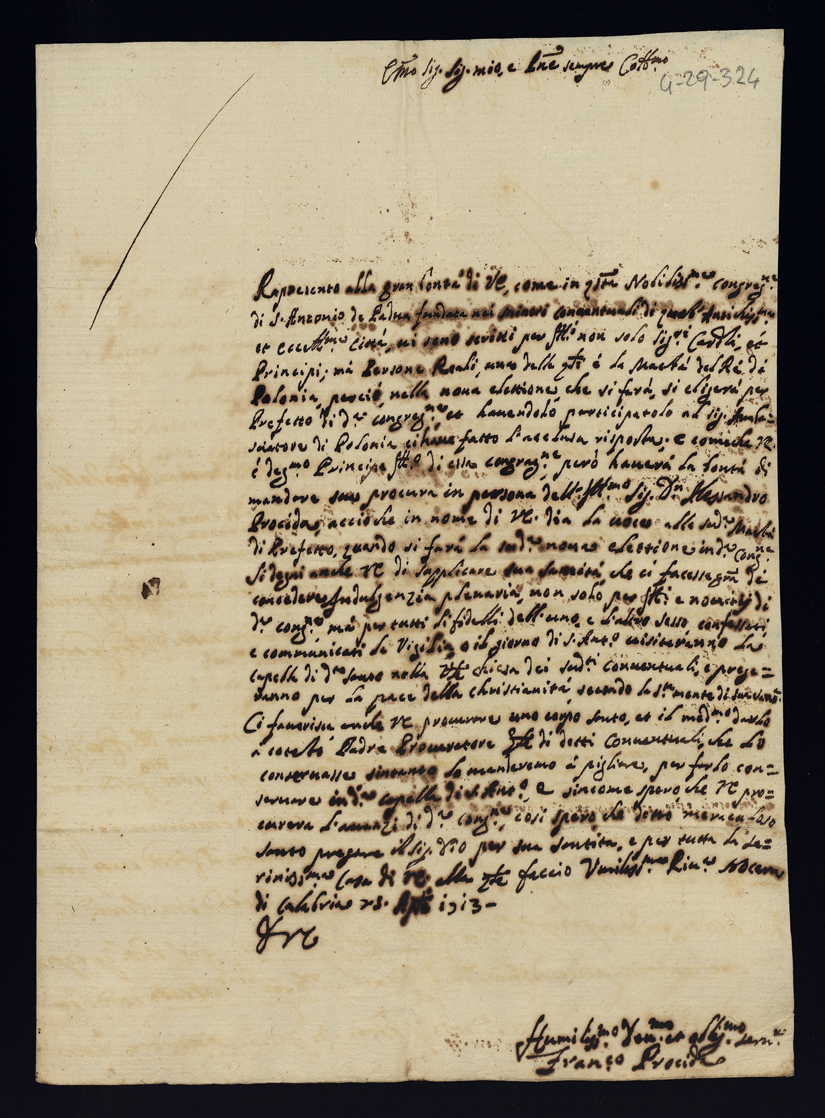 sig. sig. mio, e Pne sempre
4-29-324
Rapresento alla gran bontà di VE, come in Nobilissma congregne
di S. Antonio de Padua fundata nei minori conventuali di
et città, vi sono scritti per non solo sigri Cardli, et
Principi; mà Persone Reali, una delle qti é la Maestá del Ré di
Polonia, perció nella nova elettione, che si fará, si eligerá per
Prefetto di da congregne, et havendolo participato al sig. Amba=
sciatore di Polonia ci have fatto l'acclusa risposta; e come che VE.
é degmo Principe di essa congregne, peró haverá la bontá di
mandare sua procura in persona dell' Illmo sig. Dn Alessandro
Procida, accioche in nome di VE. dia la voce alla suda Maestá
di Prefetto, quando si fará la suda nova elettione in da congne
Si degni anche VE di supplicare sua santitá, che ci facesse gra di
concedere Indulgenzia plenaria, non solo per e di
da congne, mà per tutti li fideli dell'uno, e l'altro sesso confessati,
e communicati la Vigilia, o il giorno di S. Anto visiteranno la
capella di do santo nella chiesa dei sudti conventuali, e prege=
ranno per la pace della christianitá, secondo la sta mente di
Ci favorisca anche VE procurare uno corpo santo, et il medmo darlo
a cotesto Padre Procuratore Gle di detti Conventuali, che lo
conservasse sintanto lo manderemo á pigliare, per farlo con=
servare in da capella di S. Anto, e sincome spero che VE pro=
curerá l'avanzi di da congne, cosi spero, che ditto meraculoso
santo pregare il sig. Dio per sua santita, e per tutta la Se=
rinissma Casa di VE. alla qle faccio Umilissma Riva Nocera
di Calabria 28. Aple 1713 -
Di VE
Humilissmo Devmo et obligmo servre
Franco Procida